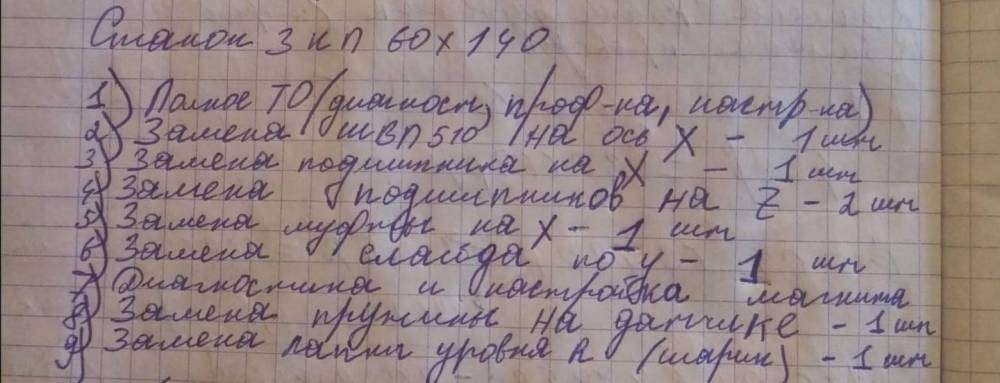 Станок 3 КП 60х140
1) Полное ТО (диагност, проф-ка, настр-ка)
2) Замена ШВП 510 на ось X - 1 шт
3) Замена подшипника на X - 1 шт
4) Замена подшипников на Z - 2 шт
5) Замена муфты на X - 1 шт
6) Замена слайда по y - 1 шт
7) Диагностика и настройка магнита
8) Замена пружины на датчике - 1 шт
9) Замена лапки уровня (шарик) - 1 шт